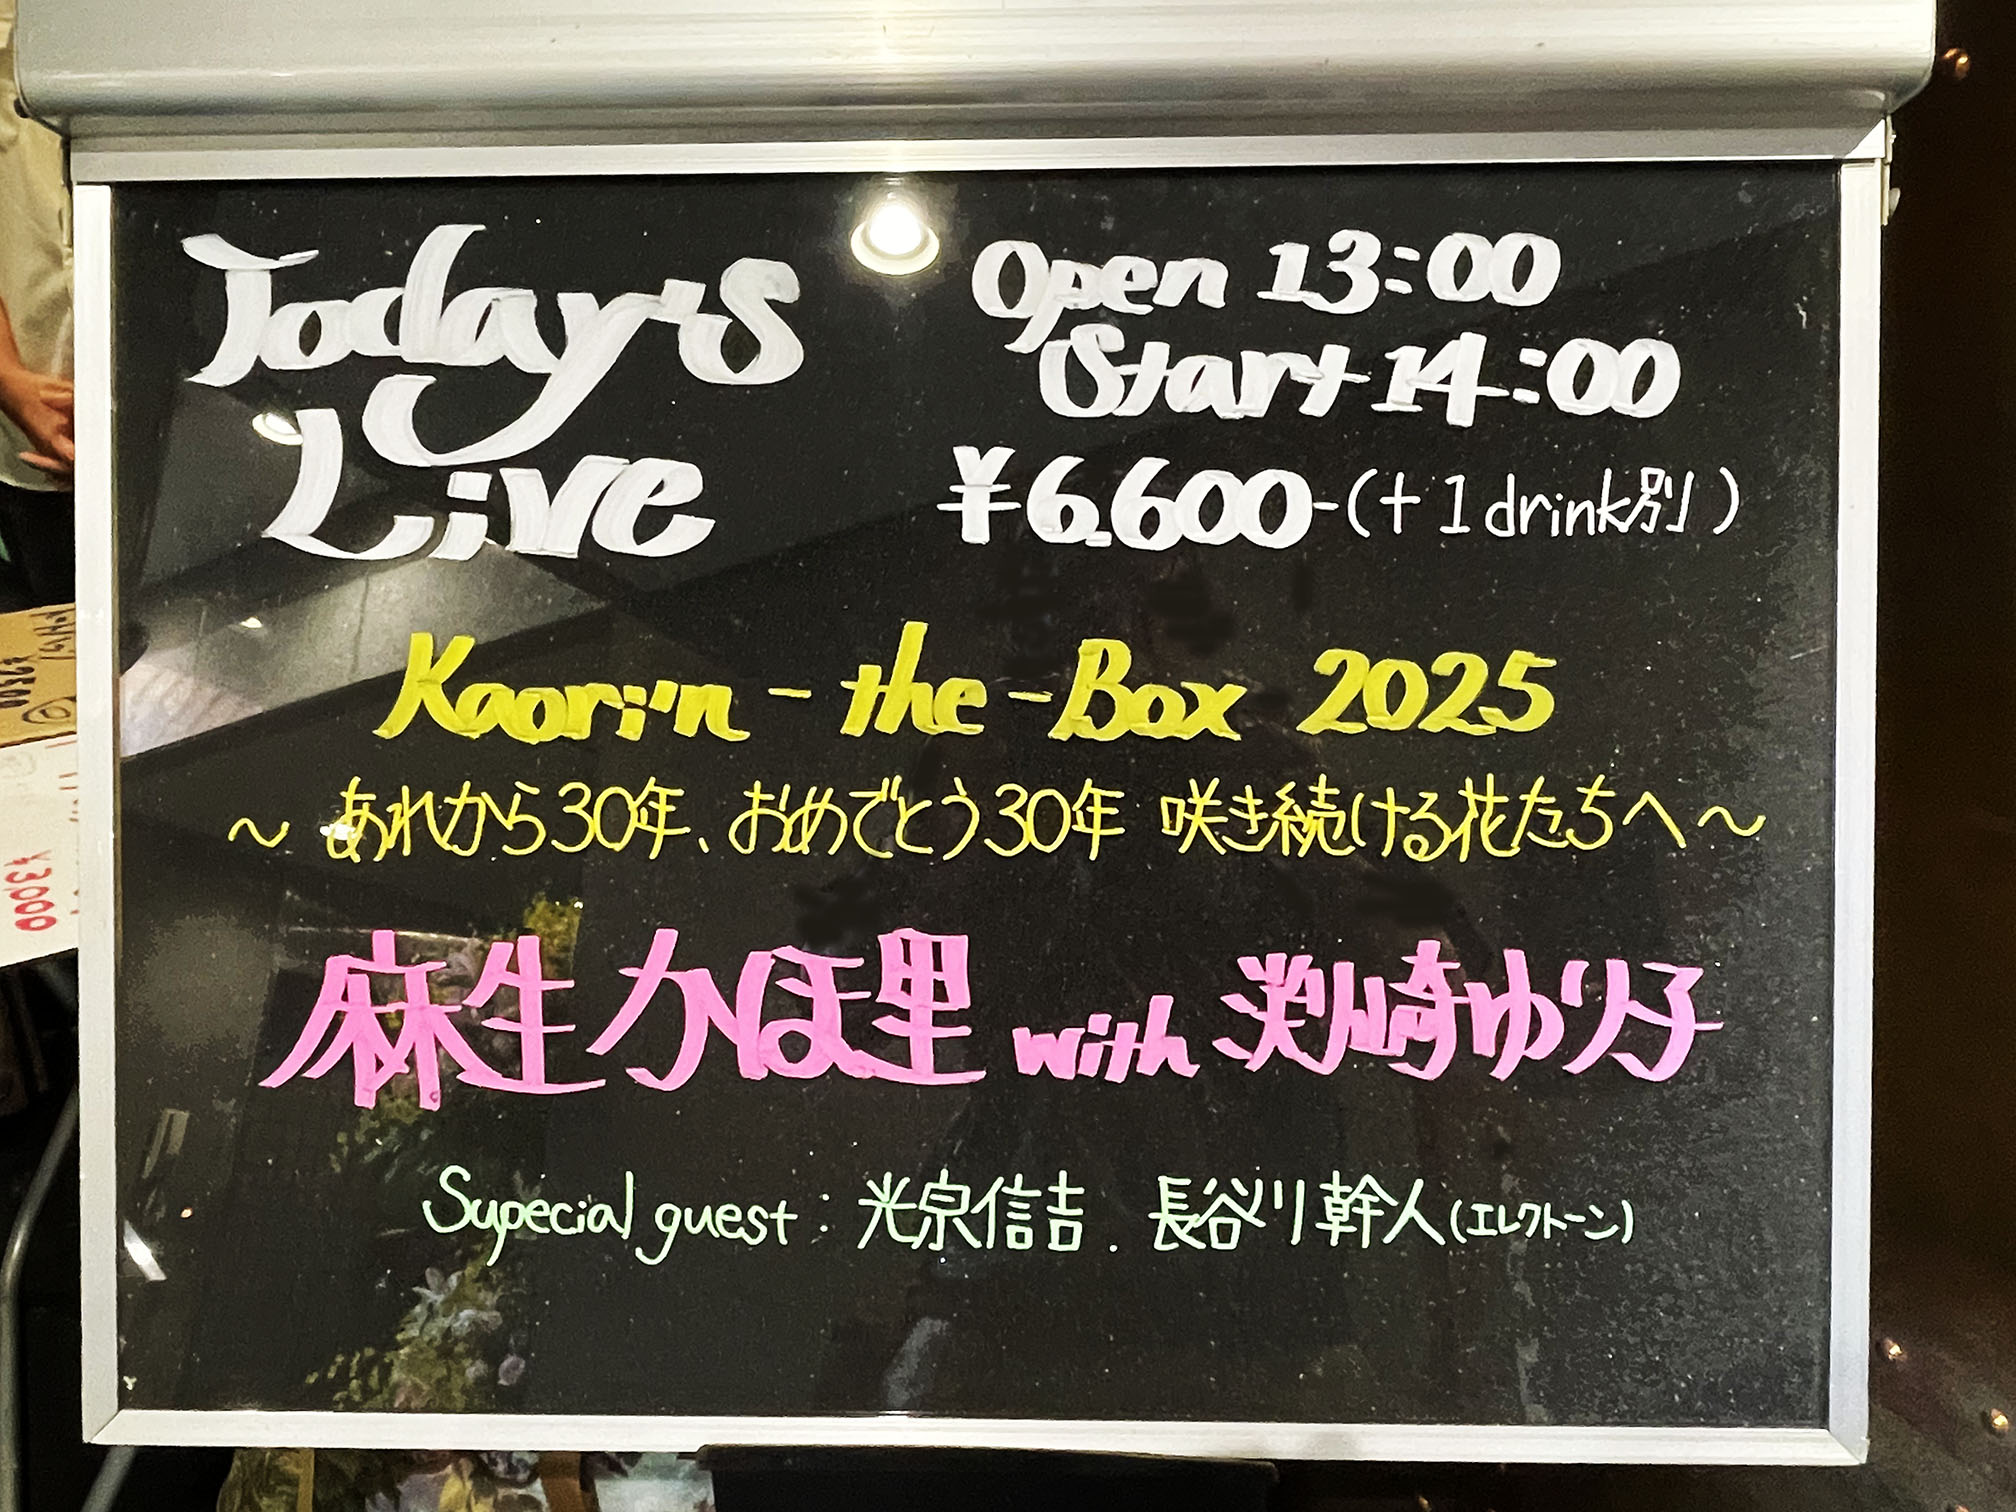 Today's
Live
Open 13:00
Start 14:00
¥6,600-(+1drink別)
Kaorin-the-Box 2025
~あれから30年、おめでとう30年 咲き続ける花たちへ~
麻生かほ里 with 渕崎ゆり子
Sypecial guest: 光宗信吉. 長谷川幹人(エレクトーン)
¥3,000